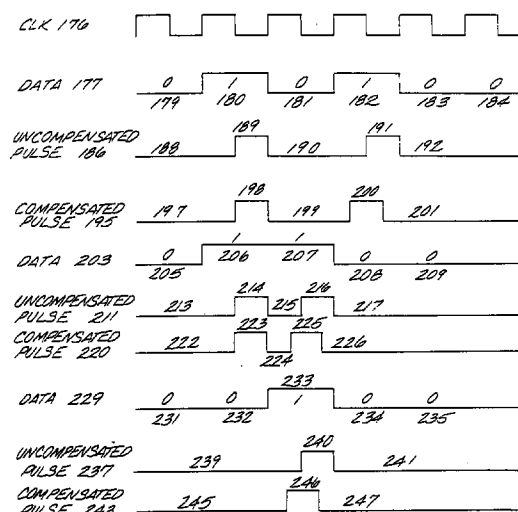 CLK 176
DATA 177
0 1 0 1 0 0
179 180 181 182 183 184
UNCOMPENSATED
PULSE 186
188 189 190 191 192
COMPENSATED
PULSE 195
197 198 199 200 201
DATA 203
0 1 1 0 0
205 206 207 208 209
UNCOMPENSATED
PULSE 211
213 214 215 216 217
COMPENSATED
PULSE 220
222 223 224 225 226
DATA 229
0 0 1 0 0
231 232 233 234 235
UNCOMPENSATED
PULSE 237
239 240 241
COMPENSATED
PULSE 243
245 246 247